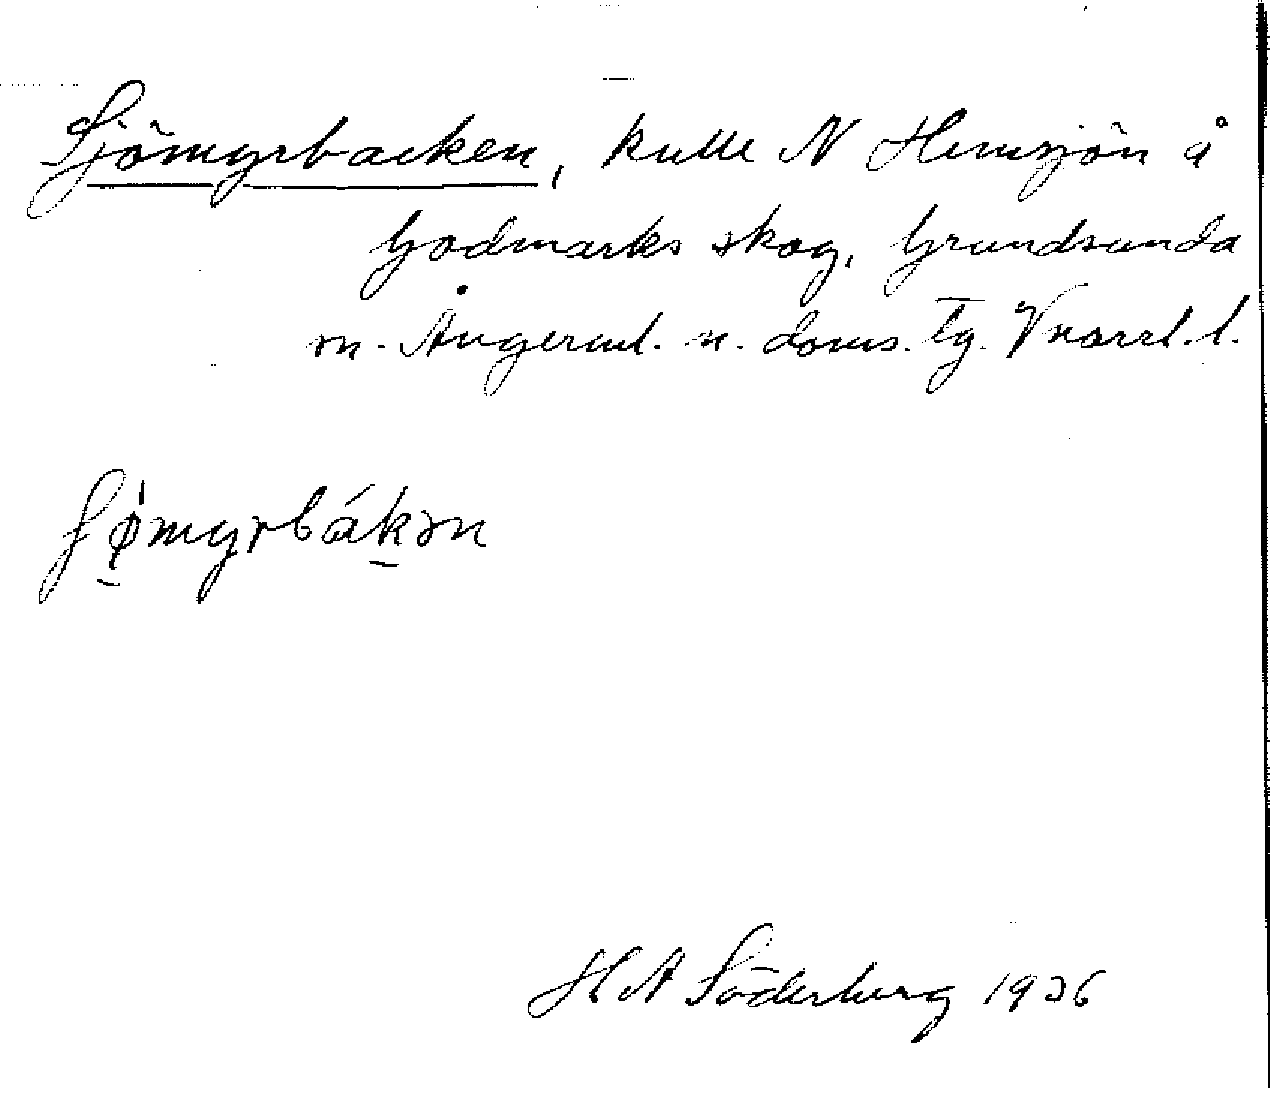 Sjömyrbacken, kulle N Hemsjön å
Godmarks skog, Grundsunda
sn. Ångerml. n. doms. tg. Vnorrl. l.
ʃø̀myrbák̠ən
H A Söderberg 1936